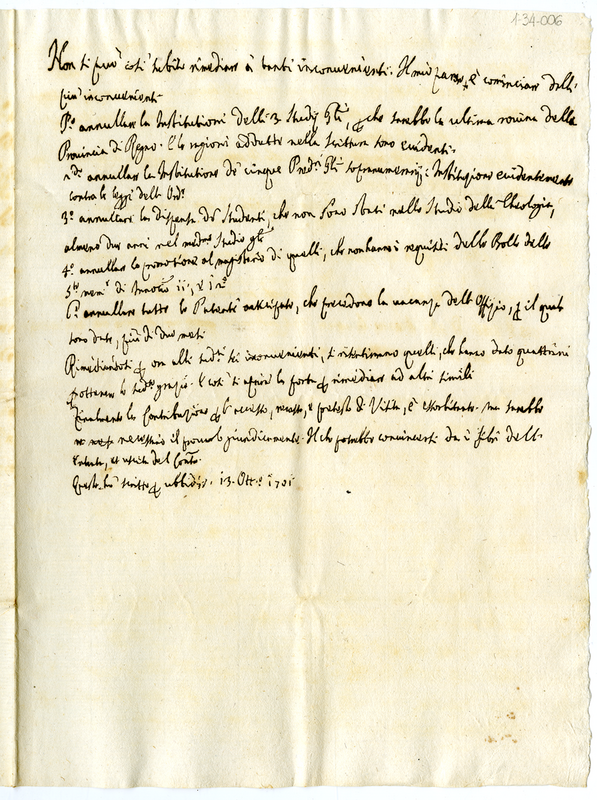 1-34-006
Non si può così subito rimediare à tanti inconvenienti. Il mio parere è cominciare dalli
più inconvenienti
P.º annullare la Institutioni delli 3 Studij Gñli, che sarebbe la ultima rovina della
Provincia di Regno. E le ragioni addotte nella scrittura sono evidenti.
2.º annullare la Institutione de cinque Pred.ri Gñli sopranumerarij: Instituzione evidentemente
contra le leggi dell' Ord.e
3.º annullare la dispensa de Studenti, che non sono stati nello Studio della Theologia,
almeno due anni nel med.mo Studio gñle
4.º annullare la promotione al magisterio di quelli, che non hanno i requisiti delle Bolle dello
di Innoc.º
annullare tutte le Patenti anticipate, che precedono la vacanza dell' Offizio, il quale
sono date, più di due mesi
Rimediandosi ora alli sud.ti inconvenienti, si risentiranno quelli, che hanno dato quattrini
ottenere le sud.te grazie. E così si aprirà la porta rimediare ad altri simili
Finalmente la Contribuzione recesso, e pretesto di Visita, è esorbitante. ma sarebbe
necessario il provarlo giuridicamente. Il che potrebbe convincersi da i libri dell'
Entrata, et uscita del Conto.
Questo hò scritto ubbidire. 13. Ott.e 1701